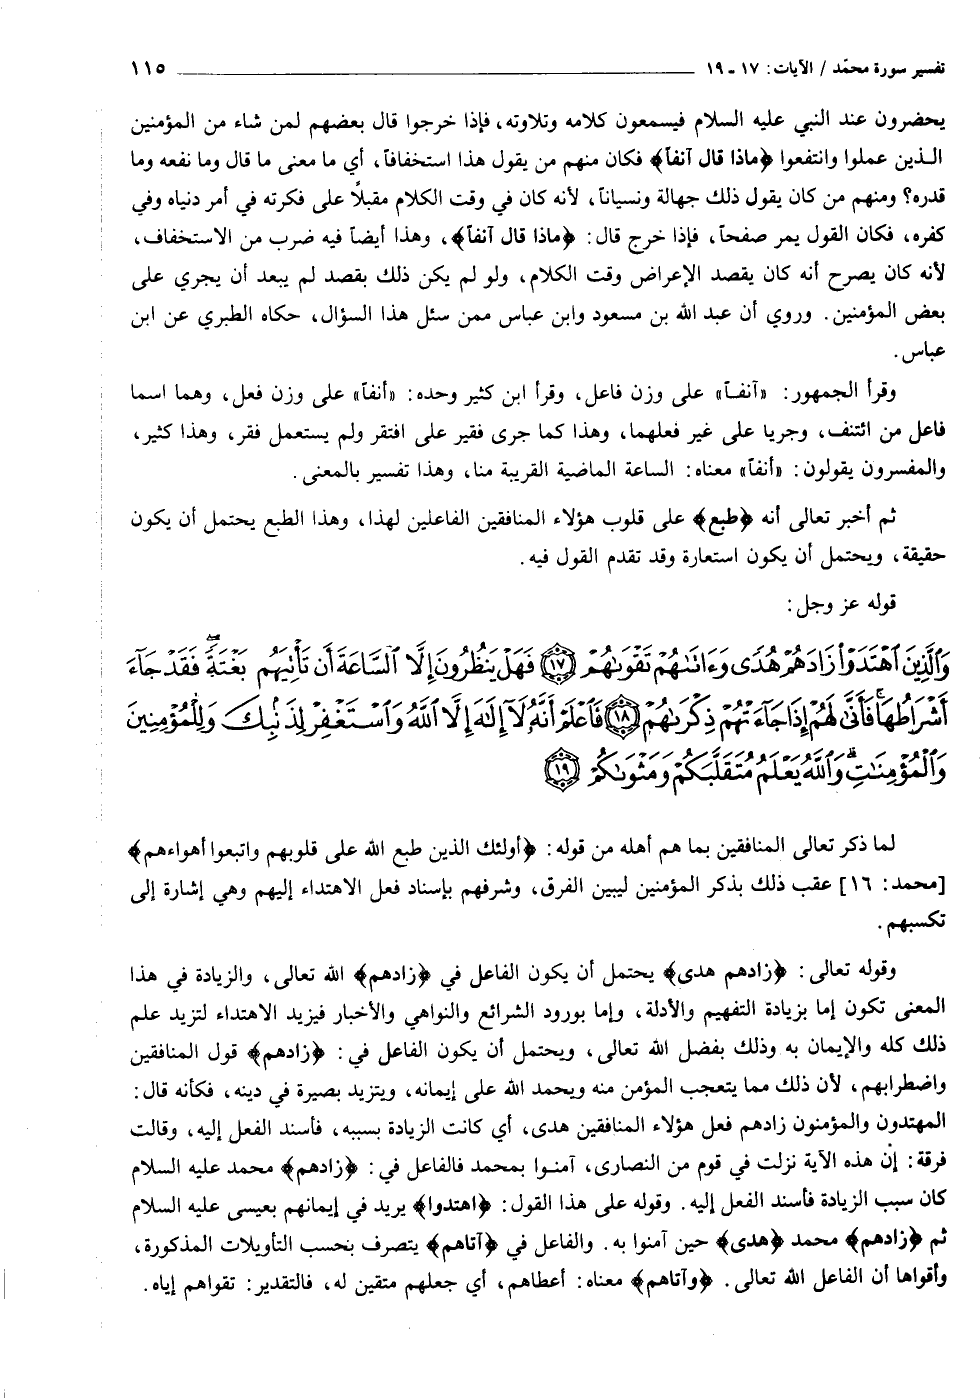 تفسير سورة محمّد / الآيات: ١٧ ـ ١٩ ١١٥
يحضرون عند النبي عليه السلام فيسمعون كلامه وتلاوته، فإذا خرجوا قال بعضهم لمن شاء من المؤمنين
الـذين عملوا وانتفعوا ﴿ماذا قال آنفاً﴾ فكان منهم من يقول هذا استخفافاً، أي ما معنى ما قال وما نفعه وما
قدره؟ ومنهم من كان يقول ذلك جهالة ونسياناً، لأنه كان في وقت الكلام مقبلاً على فكرته في أمر دنياه وفي
كفره، فكان القول يمر صفحاً، فإذا خرج قال: ﴿ماذا قال آنفاً﴾، وهذا أيضاً فيه ضرب من الاستخفاف،
لأنه كان يصرح أنه كان يقصد الإعراض وقت الكلام، ولو لم يكن ذلك بقصد لم يبعد أن يجري على
بعض المؤمنين. وروي أن عبد الله بن مسعود وابن عباس ممن سئل هذا السؤال، حكاه الطبري عن ابن
عباس.
وقرأ الجمهور: «آنفـاً» على وزن فاعل، وقرأ ابن كثير وحده: «أنفاً» على وزن فعل، وهما اسما
فاعل من ائتنف، وجريا على غير فعلهما، وهذا كما جرى فقير على افتقر ولم يستعمل فقر، وهذا كثير،
والمفسرون يقولون: «أنفاً» معناه: الساعة الماضية القريبة منا، وهذا تفسير بالمعنى.
ثم أخبر تعالى أنه ﴿طبع﴾ على قلوب هؤلاء المنافقين الفاعلين لهذا، وهذا الطبع يحتمل أن يكون
حقيقة، ويحتمل أن يكون استعارة وقد تقدم القول فيه.
قوله عز وجل:
وَٱلَّذِينَ ٱهۡتَدَوۡاْ زَادَهُمۡ هُدٗى وَءَاتَىٰهُمۡ تَقۡوَىٰهُمۡ ١٧ فَهَلۡ يَنظُرُونَ إِلَّا ٱلسَّاعَةَ أَن تَأۡتِيَهُم بَغۡتَةٗۖ فَقَدۡ جَآءَ
أَشۡرَاطُهَاۚ فَأَنَّىٰ لَهُمۡ إِذَا جَآءَتۡهُمۡ ذِكۡرَىٰهُمۡ ١٨ فَٱعۡلَمۡ أَنَّهُۥ لَآ إِلَٰهَ إِلَّا ٱللَّهُ وَٱسۡتَغۡفِرۡ لِذَنۢبِكَ وَلِلۡمُؤۡمِنِينَ
وَٱلۡمُؤۡمِنَٰتِۗ وَٱللَّهُ يَعۡلَمُ مُتَقَلَّبَكُمۡ وَمَثۡوَىٰكُمۡ ١٩
لما ذكر تعالى المنافقين بما هم أهله من قوله: ﴿أولئك الذين طبع الله على قلوبهم واتبعوا أهواءهم﴾
[محمد: ١٦] عقب ذلك بذكر المؤمنين ليبين الفرق، وشرفهم بإسناد فعل الاهتداء إليهم وهي إشارة إلى
تكسبهم.
وقوله تعالى: ﴿زادهم هدى﴾ يحتمل أن يكون الفاعل في ﴿زادهم﴾ الله تعالى، والزيادة في هذا
المعنى تكون إما بزيادة التفهيم والأدلة، وإما بورود الشرائع والنواهي والأخبار فيزيد الاهتداء لتزيد علم
ذلك كله والإيمان به وذلك بفضل الله تعالى، ويحتمل أن يكون الفاعل في: ﴿زادهم﴾ قول المنافقين
واضطرابهم، لأن ذلك مما يتعجب المؤمن منه ويحمد الله على إيمانه، ويتزيد بصيرة في دينه، فكأنه قال:
المهتدون والمؤمنون زادهم فعل هؤلاء المنافقين هدى، أي كانت الزيادة بسببه، فأسند الفعل إليه، وقالت
فرقة: إن هذه الآية نزلت في قوم من النصارى، آمنـوا بمحمد فالفاعل في: ﴿زادهم﴾ محمد عليه السلام
كان سبب الزيادة فأسند الفعل إليه. وقوله على هذا القول: ﴿اهتدوا﴾ يريد في إيمانهم بعيسى عليه السلام
ثم ﴿زادهم﴾ محمد ﴿هدى﴾ حين آمنوا به. والفاعل في ﴿آتاهم﴾ يتصرف بحسب التأويلات المذكورة،
وأقواها أن الفاعل الله تعالى. ﴿وآتاهم﴾ معناه: أعطاهم، أي جعلهم متقين له، فالتقدير: تقواهم إياه.